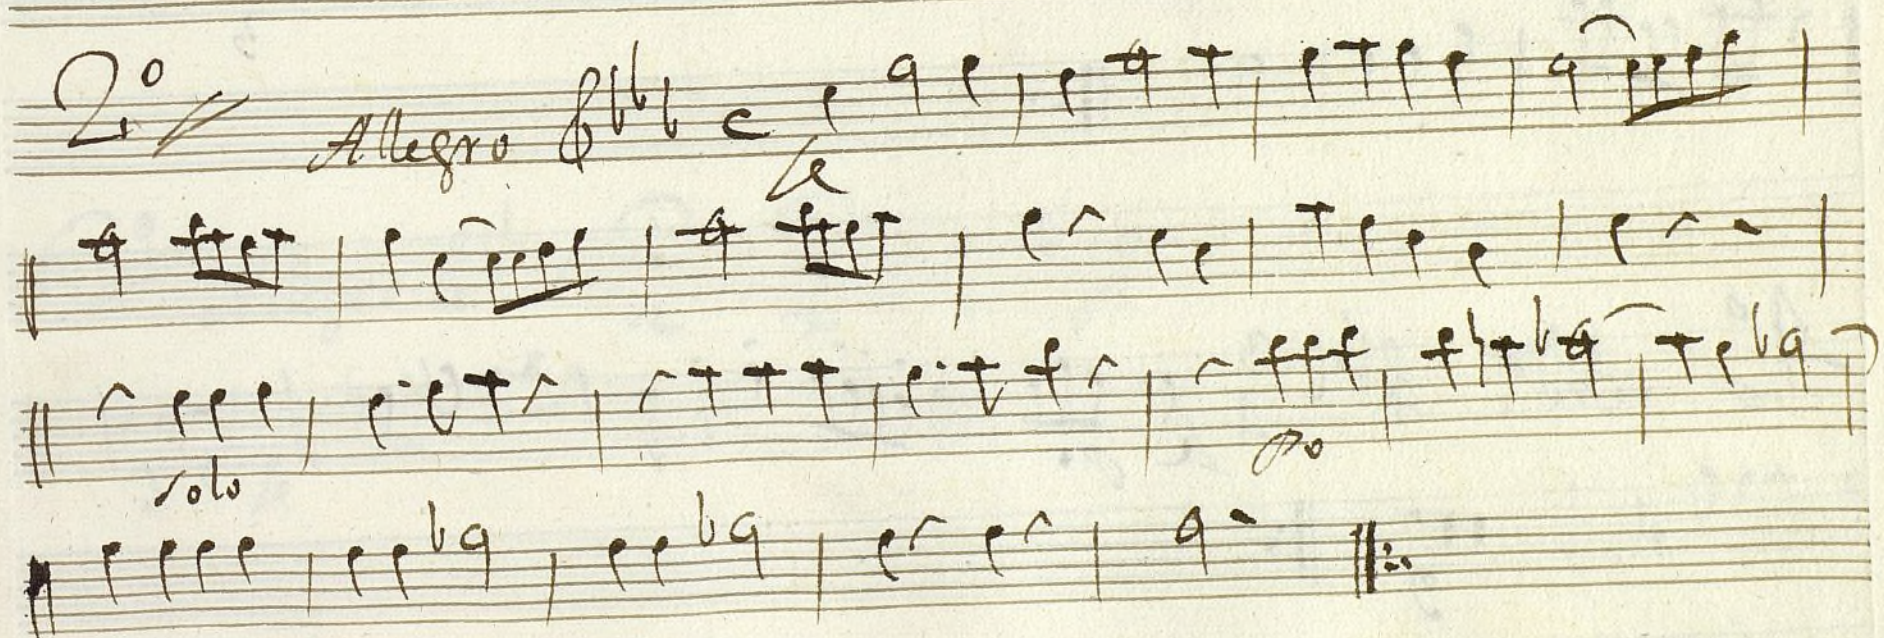 2º
Allegro
solo
po